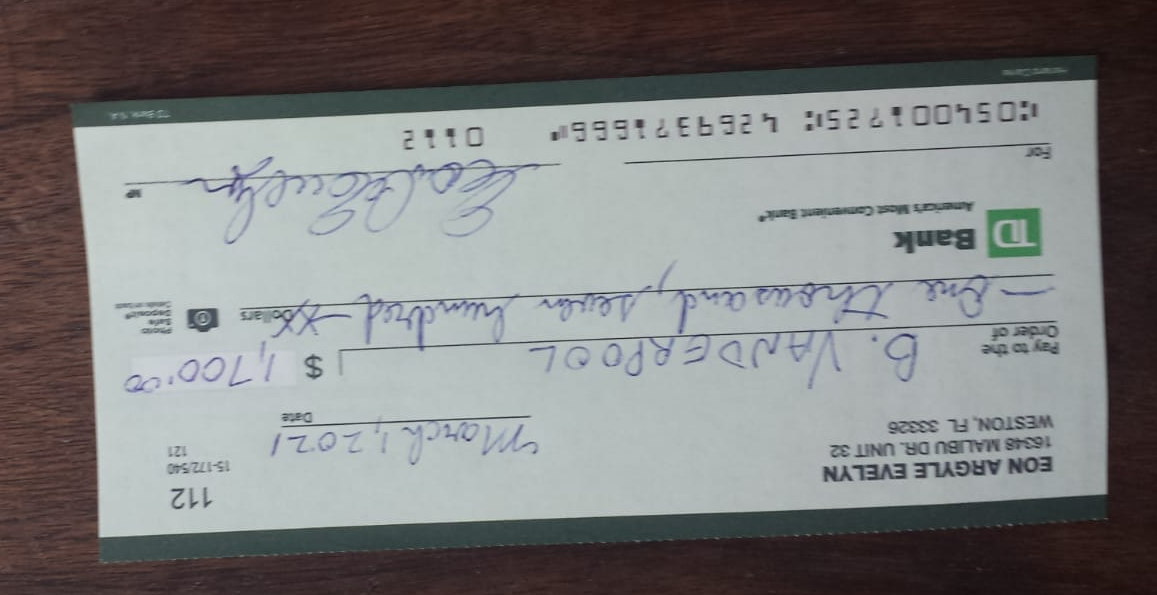 EON ARGYLE EVELYN
16348 MALIBU DR. UNIT 32
WESTON, FL 33326
112
15-172/540
121
March 1, 2021
Date
Pay to the
Order of
B. VANDERPOOL
$ 1,700.00
One thousand, seven hundred xx
Dollars
Photo
Safe
Deposit®
Details on back
TD Bank
America's Most Convenient Bank®
For
MP
⑆054001725⑆ 4269371666⑈ 0112